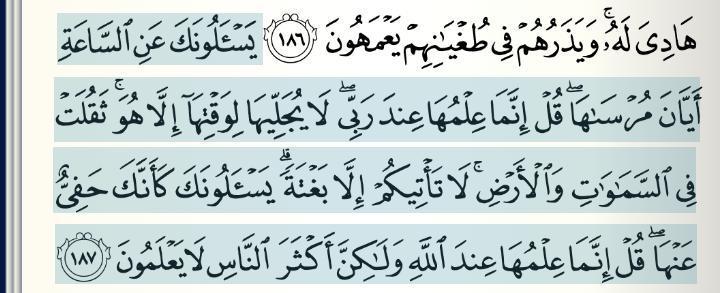 هَادِىَ لَهُۥۚ وَيَذَرُهُمْ فِى طُغْيَٰنِهِمْ يَعْمَهُونَ ١٨٦ يَسْـَٔلُونَكَ عَنِ ٱلسَّاعَةِ
أَيَّانَ مُرْسَىٰهَاۖ قُلْ إِنَّمَا عِلْمُهَا عِندَ رَبِّىۖ لَا يُجَلِّيهَا لِوَقْتِهَآ إِلَّا هُوَۚ ثَقُلَتْ
فِى ٱلسَّمَٰوَٰتِ وَٱلْأَرْضِۚ لَا تَأْتِيكُمْ إِلَّا بَغْتَةًۗ يَسْـَٔلُونَكَ كَأَنَّكَ حَفِىٌّ
عَنْهَاۖ قُلْ إِنَّمَا عِلْمُهَا عِندَ ٱللَّهِ وَلَٰكِنَّ أَكْثَرَ ٱلنَّاسِ لَا يَعْلَمُونَ ١٨٧